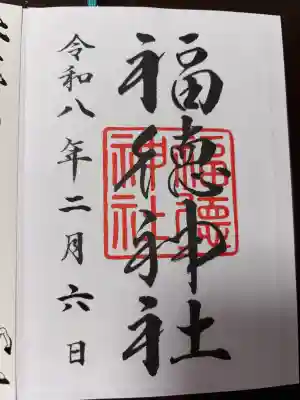 福徳神社
福徳神社
令和八年二月六日